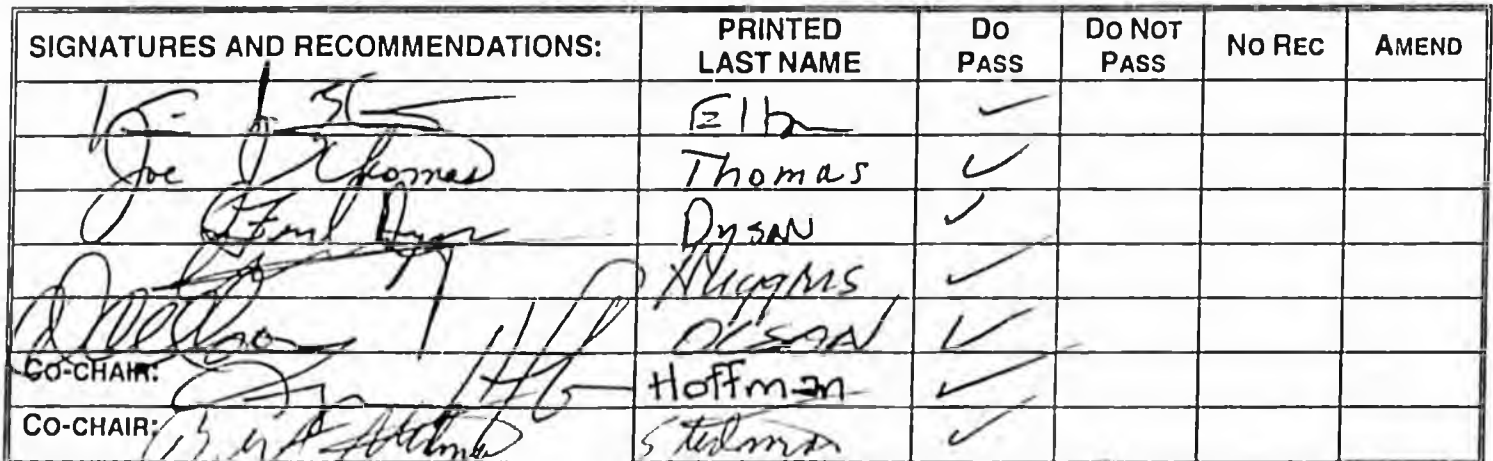 SIGNATURES AND RECOMMENDATIONS: PRINTED LAST NAME DO PASS DO NOT PASS NO REC AMEND
✓
Joe J Thomas Thomas ✓
Fred Dyson Dysan ✓
Huggins ✓
Olson ✓
CO-CHAIR: Hoffman ✓
CO-CHAIR: Bert Stedman Stedman ✓